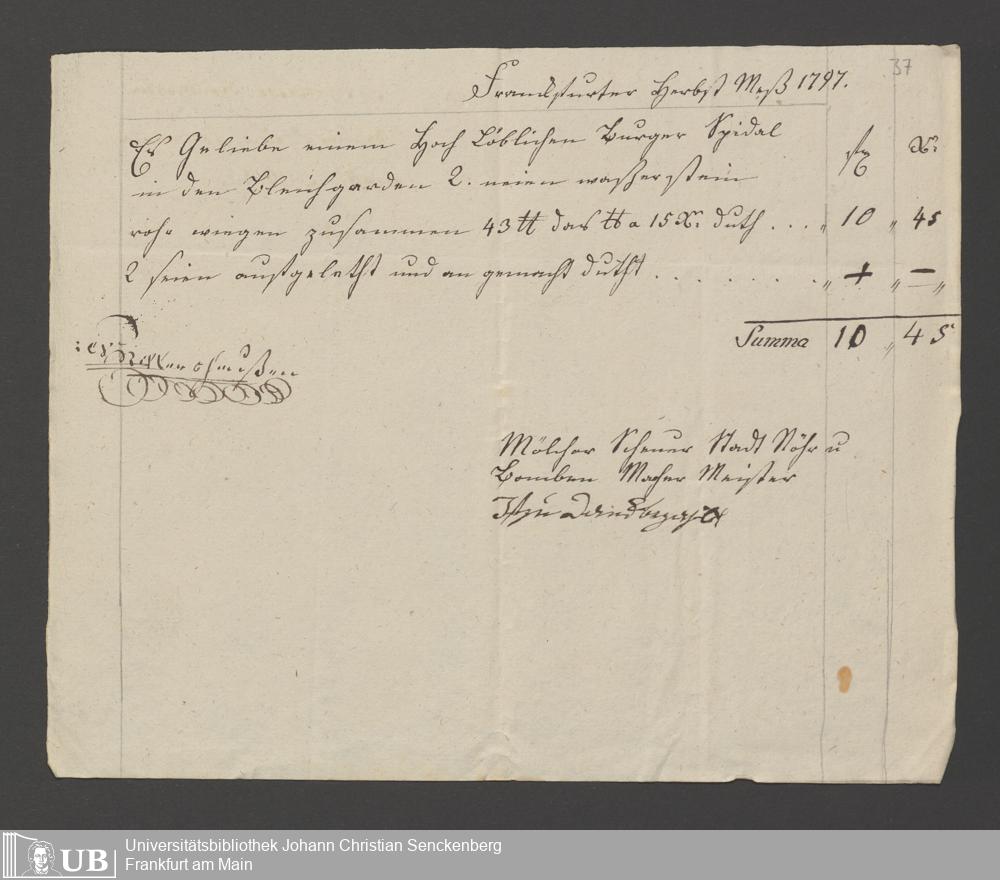 37
Franckfurter Herbst Meß 1797.
Es Geliebe einem Hoch Löblichen Burger Spidal fl Xr
in den Bleichgarden 2. neien waßerstein
rohr wiegen zusammen 43 ℔ das ℔ a 15 Xr duth . . . „ 10 „ 45
2 seien ausgeletht und an gemacht dutht . . . . . . . „ + „ — „
Summa 10 „ 45
Mölchor Scheuer Stadt Röhr u
Bomben Macher Meister
UB
Universitätsbibliothek Johann Christian Senckenberg
Frankfurt am Main